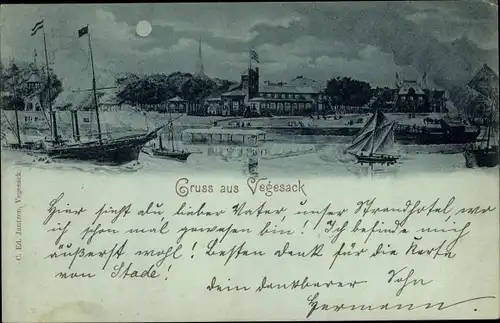 Gruss aus Vegesack
C. Ed. Jantzen, Vegesack.
Hier siehst du, lieber Vater, unser Strandhotel, wo
ich schon mal gewesen bin! Ich befinde mich
äußerst wohl! Besten Dank für die Karte
von Stade!
dein dankbarer Sohn
Hermann